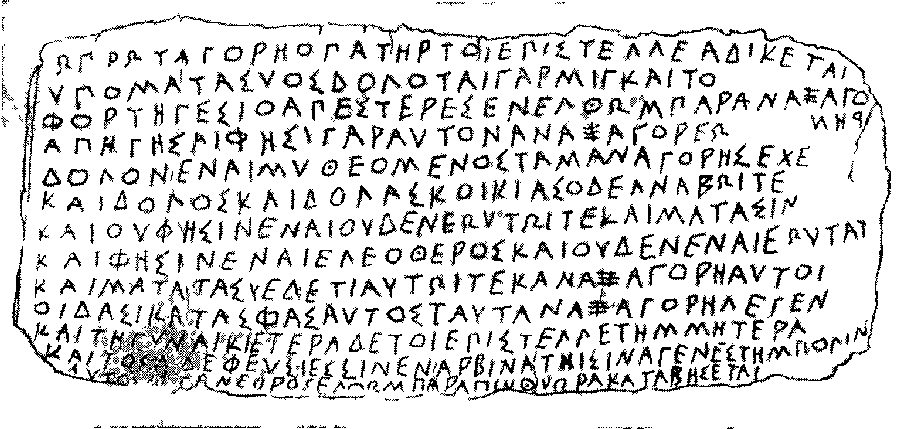 ΩΠΡΩΤΑΓΟΡΗΟΠΑΤΗΡΤΟΙΕΠΙΣΤΕΛΛΕΑΔΙΚΕΤΑΙ
ΥΠΟΜΑΤΑΣΥΟΣΔΟΛΟΤΑΙΓΑΡΜΙΓΚΑΙΤΟ
ΦΟΡΤΗΓΕΣΙΟΑΠΕΣΤΕΡΕΣΕΝΕΛΘΩΜΠΑΡΑΝΑΞΑΓΟ
ΡΗΝ
ΑΠΗΓΗΣΑΙΦΗΣΙΓΑΡΑΥΤΟΝΑΝΑΞΑΓΟΡΕΩ
ΔΟΛΟΝΕΝΑΙΜΥΘΕΟΜΕΝΟΣΤΑΜΑΝΑΓΟΡΗΣΕΧΕ
ΚΑΙΔΟΛΟΣΚΑΙΔΟΛΑΣΚΟΙΚΙΑΣΟΔΕΑΝΑΒΩΙΤΕ
ΚΑΙΟΥΦΗΣΙΝΕΝΑΙΟΥΔΕΝΕΩΥΤΩΙΤΕΚΑΙΜΑΤΑΣΙΝ
ΚΑΙΦΗΣΙΝΕΝΑΙΕΛΕΟΘΕΡΟΣΚΑΙΟΥΔΕΝΕΝΑΙΕΩΥΤΩΙ
ΚΑΙΜΑΤΑΤΑΣΥΕΔΕΤΙΑΥΤΩΙΤΕΚΑΝΑΞΑΓΟΡΗΑΥΤΟΙ
ΟΙΔΑΣΙΚΑΤΑΣΦΑΣΑΥΤΟΣΤΑΥΤΑΝΑΞΑΓΟΡΗΛΕΓΕΝ
ΚΑΙΤΗΓΥΝΑΙΚΙΕΤΕΡΑΔΕΤΟΙΕΠΙΣΤΕΛΛΕΤΗΜΜΗΤΕΡΑ
ΚΑΙΤΟΣΑΔΕΦΕΥΣΙΕΣΣΙΝΕΝΑΡΒΙΝΑΤΗΙΣΙΝΑΓΕΝΕΣΤΗΜΠΟΛΙΝ
ΑΥΤΟΣΝΕΟΡΟΣΕΛΘΩΜΠΑΡΑΜΙΝΘΥΩΡΑΚΑΤΑΒΗΣΕΤΑΙ